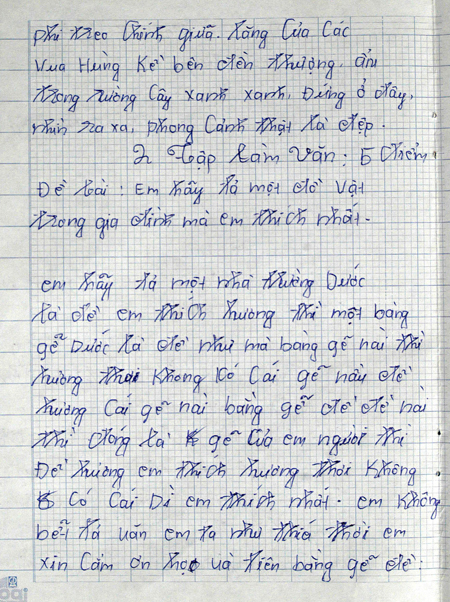 phi treo Chính giữa. Lăng Của Các
Vua Hùng Kề bên đền thượng, ẩn
trong rường Cây xanh xanh, Đứng ở đây,
nhìn ra xa, phong Cảnh thật là đẹp.
2 Tập Làm Văn: 5 Điểm
Đề bài: Em hãy tả một đồ Vật
trong gia đình mà em thích nhất.
em hẫy tả một nhà thường Dước
là để em thích hương thì một bàng
gễ Dước là để như mà bàng gễ nài thì
hương thơi Không Có Cái gễ nầu để
hương Cái gễ nài bằng gễ để để nài
thì đóng là gễ Của em người thì
Để hương em thích hương thời Không
Có Cái Dì em thích nhất. em Không
bết tả uăn em tả như thiá thôi em
xin Cảm ơn học uà tiên bằng gễ để: